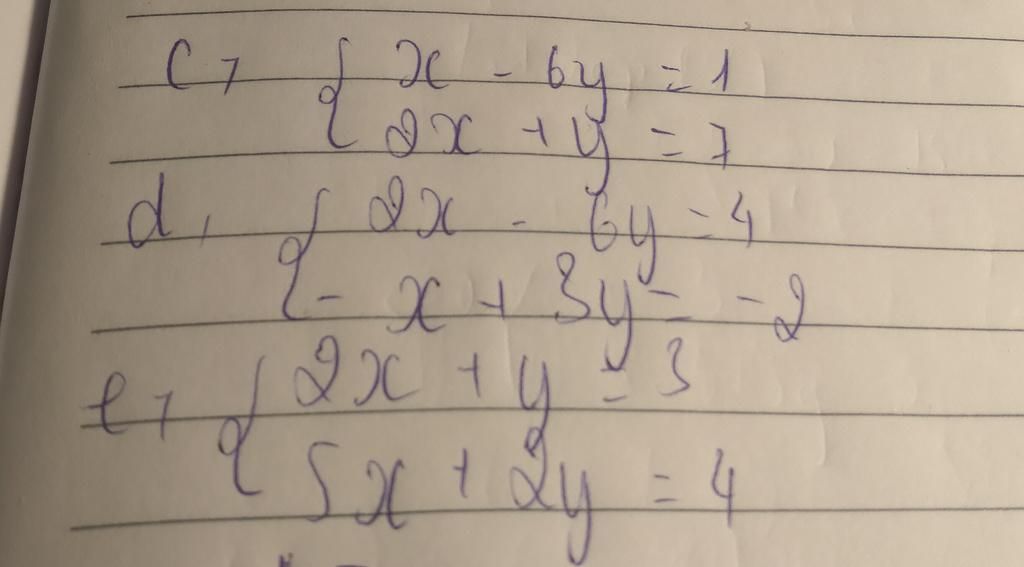 c, { x - 6y = 1
2x + y = 7
d, { 2x - 6y = 4
- x + 3y = -2
e, { 2x + y = 3
5x + 2y = 4